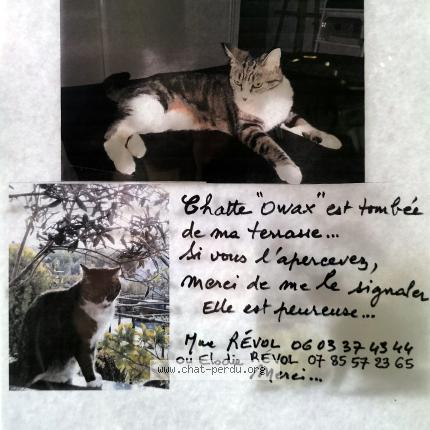 Chatte "Owax" est tombée
de ma terrasse...
Si vous l'apercevez,
merci de me le signaler
Elle est peureuse...
Mme RÉVOL 06 03 37 43 44
ou Elodie REVOL 07 85 57 23 65
www.chat-perdu.org
Merci...